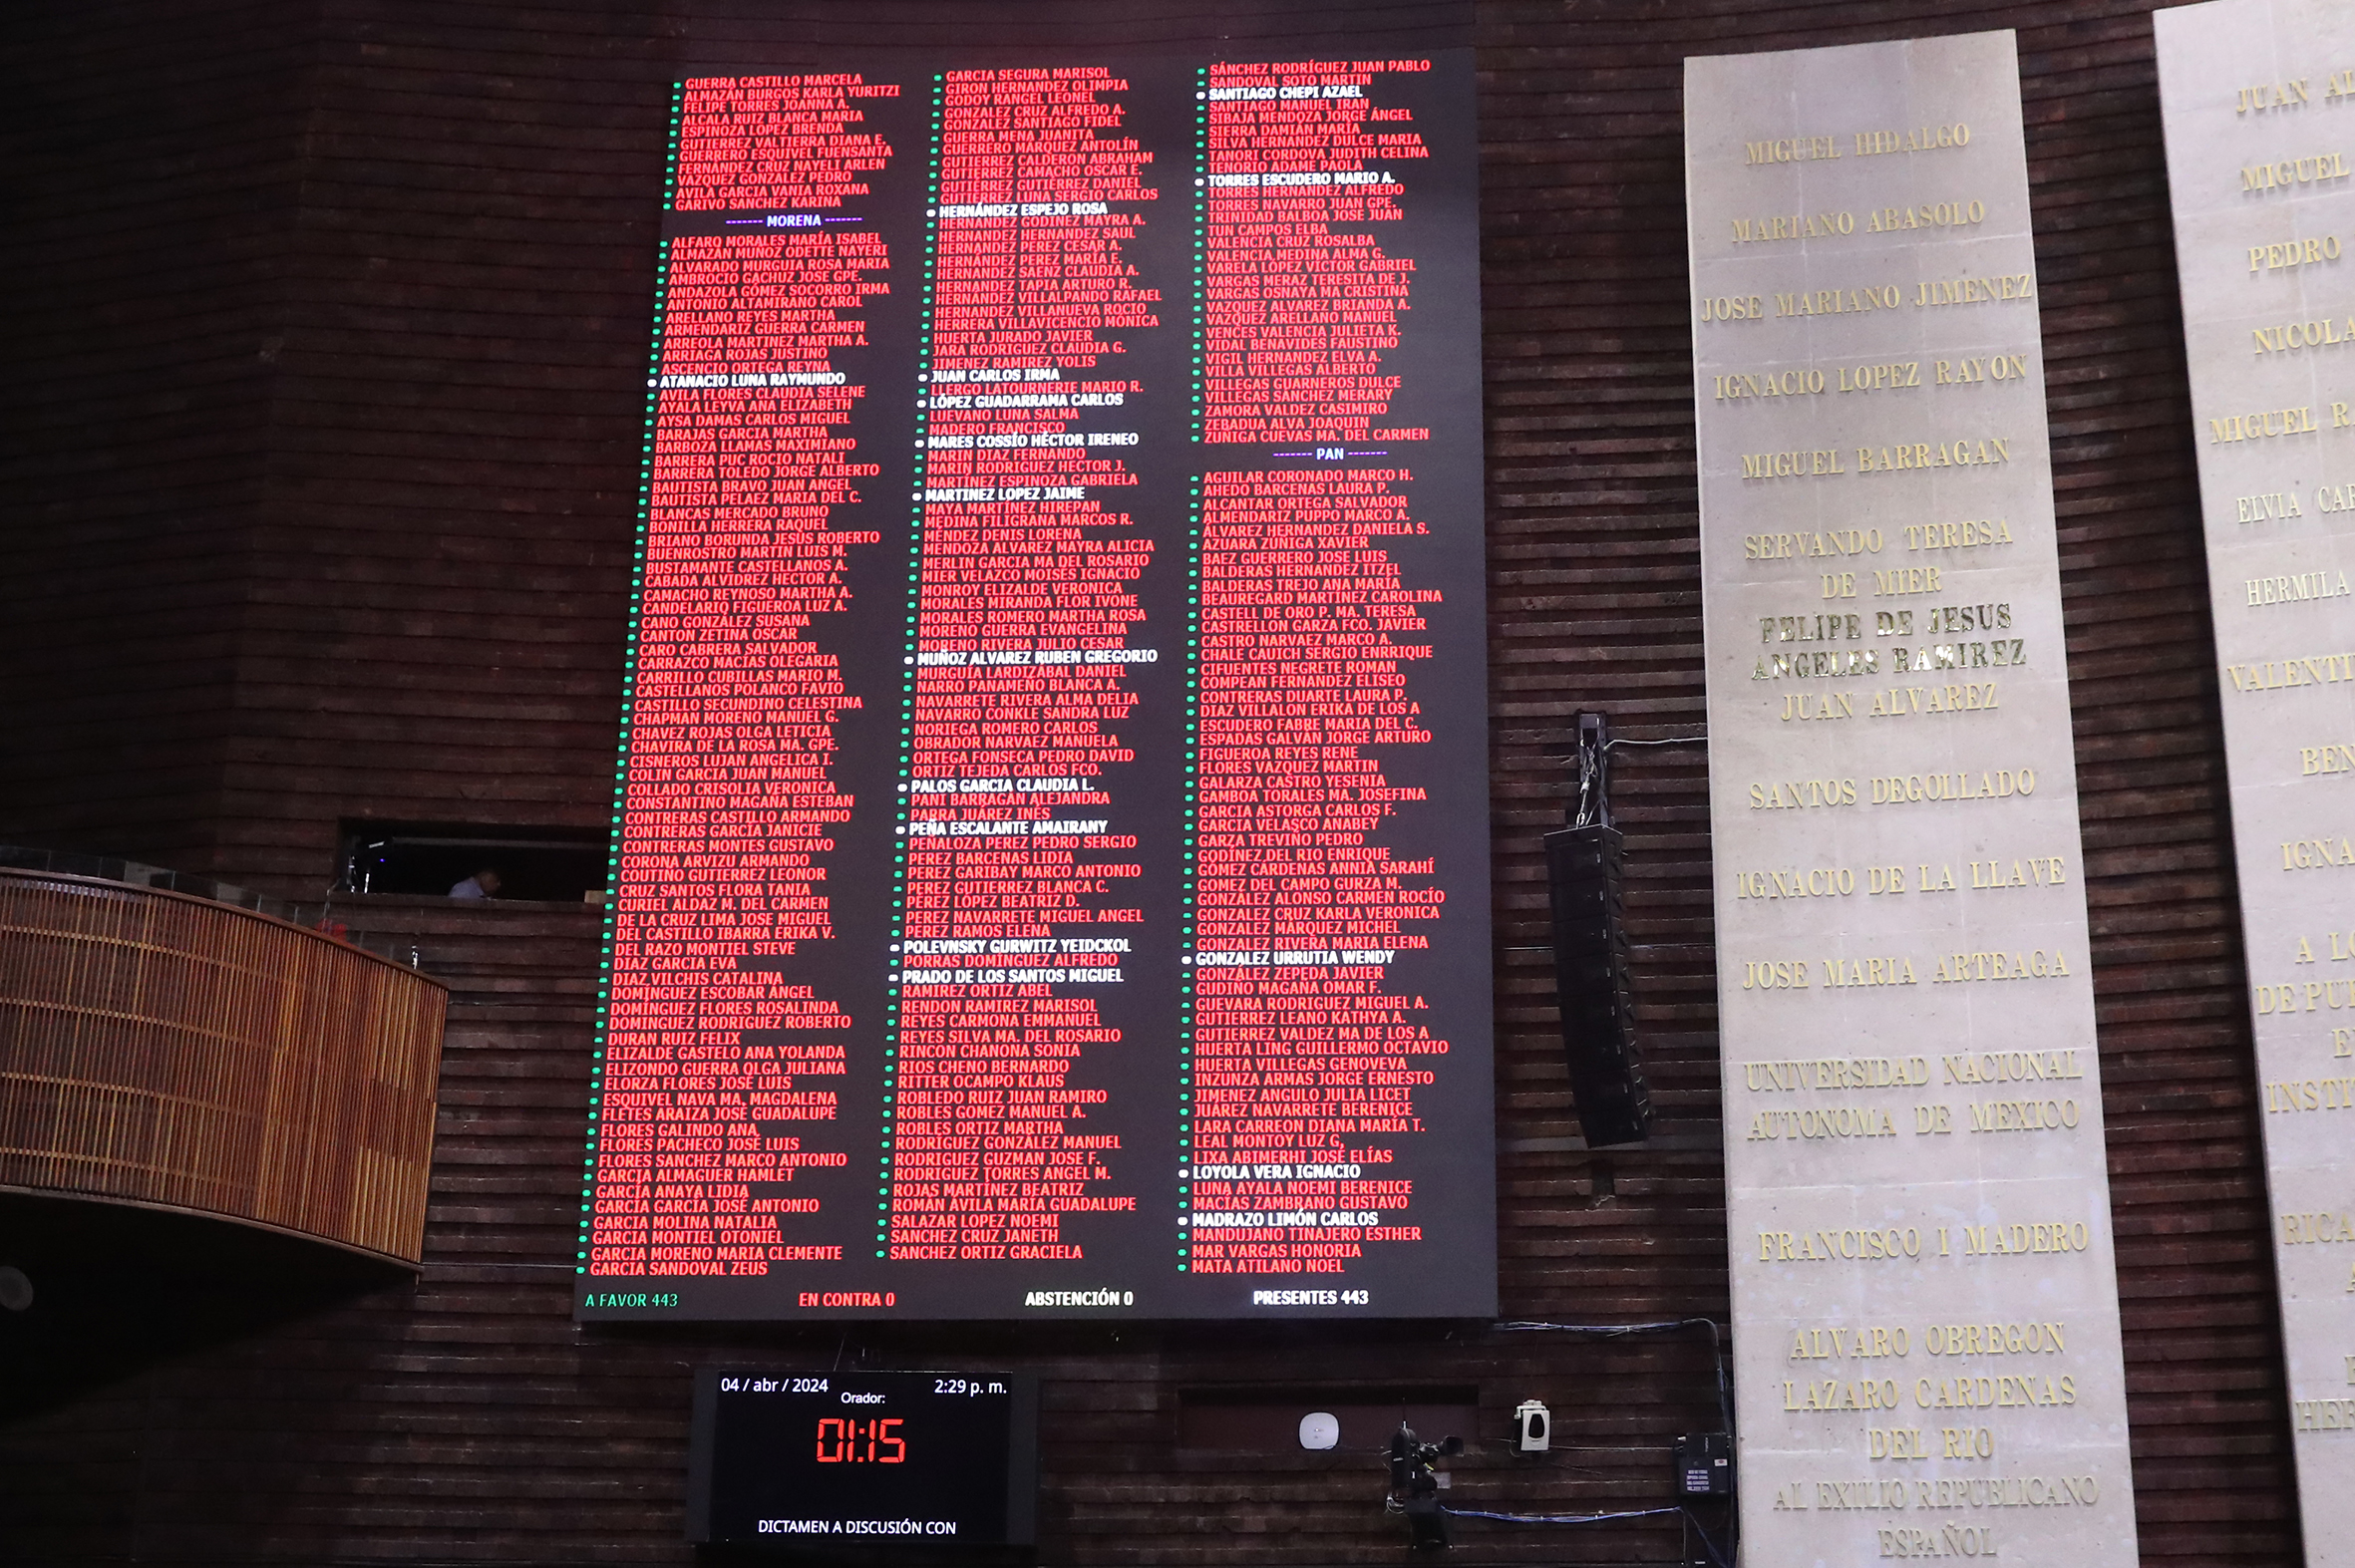 GUERRA CASTILLO MARCELA
ALMAZÁN BURGOS KARLA YURITZI
FELIPE TORRES JOANNA A.
ALCALA RUIZ BLANCA MARIA
ESPINOZA LÓPEZ BRENDA
GUTIERREZ VALTIERRA DIANA E.
GUERRERO ESQUIVEL FUENSANTA
FERNÁNDEZ CRUZ NAYELI ARLEN
VÁZQUEZ GONZÁLEZ PEDRO
AVILA GARCIA VANIA ROXANA
GARIVO SANCHEZ KARINA
------- MORENA -------
ALFARO MORALES MARÍA ISABEL
ALMAZÁN MUÑOZ ODETTE NAYERI
ALVARADO MURGUIA ROSA MARIA
AMBROCIO GACHUZ JOSE GPE.
ANDAZOLA GÓMEZ SOCORRO IRMA
ANTONIO ALTAMIRANO CAROL
ARELLANO REYES MARTHA
ARMENDARIZ GUERRA CARMEN
ARREOLA MARTINEZ MARTHA A.
ARRIAGA ROJAS JUSTINO
ASCENCIO ORTEGA REYNA
ATANACIO LUNA RAYMUNDO
AVILA FLORES CLAUDIA SELENE
AYALA LEYVA ANA ELIZABETH
AYSA DAMAS CARLOS MIGUEL
BARAJAS GARCIA MARTHA
BARBOZA LLAMAS MAXIMIANO
BARRERA PUC ROCIO NATALI
BARRERA TOLEDO JORGE ALBERTO
BAUTISTA BRAVO JUAN ANGEL
BAUTISTA PELAEZ MARIA DEL C.
BLANCAS MERCADO BRUNO
BONILLA HERRERA RAQUEL
BRIANO BORUNDA JESÚS ROBERTO
BUENROSTRO MARTIN LUIS M.
BUSTAMANTE CASTELLANOS A.
CABADA ALVIDREZ HECTOR A.
CAMACHO REYNOSO MARTHA A.
CANDELARIO FIGUEROA LUZ A.
CANO GONZÁLEZ SUSANA
CANTON ZETINA OSCAR
CARO CABRERA SALVADOR
CARRAZCO MACÍAS OLEGARIA
CARRILLO CUBILLAS MARIO M.
CASTELLANOS POLANCO FAVIO
CASTILLO SECUNDINO CELESTINA
CHAPMAN MORENO MANUEL G.
CHAVEZ ROJAS OLGA LETICIA
CHAVIRA DE LA ROSA MA. GPE.
CISNEROS LUJAN ANGELICA I.
COLIN GARCIA JUAN MANUEL
COLLADO CRISOLIA VERONICA
CONSTANTINO MAGAÑA ESTEBAN
CONTRERAS CASTILLO ARMANDO
CONTRERAS GARCÍA JANICIE
CONTRERAS MONTES GUSTAVO
CORONA ARVIZU ARMANDO
COUTINO GUTIERREZ LEONOR
CRUZ SANTOS FLORA TANIA
CURIEL ALDAZ M. DEL CARMEN
DE LA CRUZ LIMA JOSE MIGUEL
DEL CASTILLO IBARRA ERIKA V.
DEL RAZO MONTIEL STEVE
DIAZ GARCIA EVA
DIAZ VILCHIS CATALINA
DOMÍNGUEZ ESCOBAR ÁNGEL
DOMÍNGUEZ FLORES ROSALINDA
DOMINGUEZ RODRIGUEZ ROBERTO
DURAN RUIZ FELIX
ELIZALDE GASTELO ANA YOLANDA
ELIZONDO GUERRA OLGA JULIANA
ELORZA FLORES JOSÉ LUIS
ESQUIVEL NAVA MA. MAGDALENA
FLETES ARAIZA JOSÉ GUADALUPE
FLORES GALINDO ANA
FLORES PACHECO JOSÉ LUIS
FLORES SANCHEZ MARCO ANTONIO
GARCÍA ALMAGUER HAMLET
GARCÍA ANAYA LIDIA
GARCÍA GARCÍA JOSÉ ANTONIO
GARCIA MOLINA NATALIA
GARCIA MONTIEL OTONIEL
GARCIA MORENO MARIA CLEMENTE
GARCIA SANDOVAL ZEUS
GARCIA SEGURA MARISOL
GIRON HERNANDEZ OLIMPIA
GODOY RANGEL LEONEL
GONZALEZ CRUZ ALFREDO A.
GONZALEZ SANTIAGO FIDEL
GUERRA MENA JUANITA
GUERRERO MÁRQUEZ ANTOLÍN
GUTIERREZ CALDERON ABRAHAM
GUTIERREZ CAMACHO OSCAR E.
GUTIÉRREZ GUTIÉRREZ DANIEL
GUTIERREZ LUNA SERGIO CARLOS
HERNÁNDEZ ESPEJO ROSA
HERNANDEZ GODINEZ MAYRA A.
HERNANDEZ HERNANDEZ SAUL
HERNÁNDEZ PEREZ CESAR A.
HERNÁNDEZ PEREZ MARÍA E.
HERNANDEZ SAENZ CLAUDIA A.
HERNANDEZ TAPIA ARTURO R.
HERNANDEZ VILLALPANDO RAFAEL
HERNANDEZ VILLANUEVA ROCIO
HERRERA VILLAVICENCIO MÓNICA
HUERTA JURADO JAVIER
JARA RODRIGUEZ CLAUDIA G.
JIMENEZ RAMIREZ YOLIS
JUAN CARLOS IRMA
LLERGO LATOURNERIE MARIO R.
LÓPEZ GUADARRAMA CARLOS
LUEVANO LUNA SALMA
MADERO FRANCISCO
MARES COSSÍO HÉCTOR IRENEO
MARIN DIAZ FERNANDO
MARIN RODRIGUEZ HECTOR J.
MARTÍNEZ ESPINOZA GABRIELA
MARTINEZ LOPEZ JAIME
MAYA MARTÍNEZ HIREPAN
MEDINA FILIGRANA MARCOS R.
MÉNDEZ DENIS LORENA
MENDOZA ALVAREZ MAYRA ALICIA
MERLIN GARCIA MA DEL ROSARIO
MIER VELAZCO MOISÉS IGNACIO
MONROY ELIZALDE VERONICA
MORALES MIRANDA FLOR IVONE
MORALES ROMERO MARTHA ROSA
MORENO GUERRA EVANGELINA
MORENO RIVERA JULIO CESAR
MUÑOZ ALVAREZ RUBEN GREGORIO
MURGUÍA LARDIZÁBAL DANIEL
NARRO PANAMEÑO BLANCA A.
NAVARRETE RIVERA ALMA DELIA
NAVARRO CONKLE SANDRA LUZ
NORIEGA ROMERO CARLOS
OBRADOR NARVAEZ MANUELA
ORTEGA FONSECA PEDRO DAVID
ORTIZ TEJEDA CARLOS FCO.
PALOS GARCIA CLAUDIA L.
PANI BARRAGAN ALEJANDRA
PARRA JUÁREZ INÉS
PEÑA ESCALANTE AMAIRANY
PEÑALOZA PEREZ PEDRO SERGIO
PEREZ BARCENAS LIDIA
PEREZ GARIBAY MARCO ANTONIO
PEREZ GUTIERREZ BLANCA C.
PEREZ LÓPEZ BEATRIZ D.
PEREZ NAVARRETE MIGUEL ANGEL
PEREZ RAMOS ELENA
POLEVNSKY GURWITZ YEIDCKOL
PORRAS DOMÍNGUEZ ALFREDO
PRADO DE LOS SANTOS MIGUEL
RAMIREZ ORTIZ ABEL
RENDON RAMIREZ MARISOL
REYES CARMONA EMMANUEL
REYES SILVA MA. DEL ROSARIO
RINCON CHANONA SONIA
RIOS CHENO BERNARDO
RITTER OCAMPO KLAUS
ROBLEDO RUIZ JUAN RAMIRO
ROBLES GOMEZ MANUEL A.
ROBLES ORTIZ MARTHA
RODRÍGUEZ GONZÁLEZ MANUEL
RODRIGUEZ GUZMAN JOSE F.
RODRIGUEZ TORRES ANGEL M.
ROJAS MARTÍNEZ BEATRIZ
ROMAN AVILA MARIA GUADALUPE
SALAZAR LOPEZ NOEMI
SANCHEZ CRUZ JANETH
SANCHEZ ORTIZ GRACIELA
SÁNCHEZ RODRÍGUEZ JUAN PABLO
SANDOVAL SOTO MARTIN
SANTIAGO CHEPI AZAEL
SANTIAGO MANUEL IRAN
SIBAJA MENDOZA JORGE ÁNGEL
SIERRA DAMIÁN MARÍA
SILVA HERNANDEZ DULCE MARIA
TANORI CORDOVA JUDITH CELINA
TENORIO ADAME PAOLA
TORRES ESCUDERO MARIO A.
TORRES HERNANDEZ ALFREDO
TORRES NAVARRO JUAN GPE.
TRINIDAD BALBOA JOSE JUAN
TUN CAMPOS ELBA
VALENCIA CRUZ ROSALBA
VALENCIA MEDINA ALMA G.
VARELA LÓPEZ VICTOR GABRIEL
VARGAS MERAZ TERESITA DE J.
VARGAS OSNAYA MA CRISTINA
VAZQUEZ ALVAREZ BRIANDA A.
VAZQUEZ ARELLANO MANUEL
VENCES VALENCIA JULIETA K.
VIDAL BENAVIDES FAUSTINO
VIGIL HERNANDEZ ELVA A.
VILLA VILLEGAS ALBERTO
VILLEGAS GUARNEROS DULCE
VILLEGAS SANCHEZ MERARY
ZAMORA VALDEZ CASIMIRO
ZEBADUA ALVA JOAQUIN
ZUÑIGA CUEVAS MA. DEL CARMEN
------- PAN -------
AGUILAR CORONADO MARCO H.
AHEDO BARCENAS LAURA P.
ALCANTAR ORTEGA SALVADOR
ALMENDARIZ PUPPO MARCO A.
ALVAREZ HERNANDEZ DANIELA S.
AZUARA ZUÑIGA XAVIER
BAEZ GUERRERO JOSE LUIS
BALDERAS HERNÁNDEZ ITZEL
BALDERAS TREJO ANA MARÍA
BEAUREGARD MARTÍNEZ CAROLINA
CASTELL DE ORO P. MA. TERESA
CASTRELLON GARZA FCO. JAVIER
CASTRO NARVAEZ MARCO A.
CHALE CAUICH SERGIO ENRRIQUE
CIFUENTES NEGRETE ROMAN
COMPEAN FERNÁNDEZ ELISEO
CONTRERAS DUARTE LAURA P.
DIAZ VILLALON ERIKA DE LOS A
ESCUDERO FABRE MARIA DEL C.
ESPADAS GALVÁN JORGE ARTURO
FIGUEROA REYES RENE
FLORES VÁZQUEZ MARTIN
GALARZA CASTRO YESENIA
GAMBOA TORALES MA. JOSEFINA
GARCIA ASTORGA CARLOS F.
GARCIA VELASCO ANABEY
GARZA TREVIÑO PEDRO
GODÍNEZ DEL RIO ENRIQUE
GÓMEZ CÁRDENAS ANNIA SARAHÍ
GOMEZ DEL CAMPO GURZA M.
GONZÁLEZ ALONSO CARMEN ROCÍO
GONZALEZ CRUZ KARLA VERONICA
GONZALEZ MÁRQUEZ MICHEL
GONZALEZ RIVERA MARIA ELENA
GONZÁLEZ URRUTIA WENDY
GONZÁLEZ ZEPEDA JAVIER
GUDIÑO MAGAÑA OMAR F.
GUEVARA RODRIGUEZ MIGUEL A.
GUTIERREZ LEAÑO KATHYA A.
GUTIERREZ VALDEZ MA DE LOS A
HUERTA LING GUILLERMO OCTAVIO
HUERTA VILLEGAS GENOVEVA
INZUNZA ARMAS JORGE ERNESTO
JIMENEZ ANGULO JULIA LICET
JUÁREZ NAVARRETE BERENICE
LARA CARREON DIANA MARÍA T.
LEAL MONTOY LUZ G.
LIXA ABIMERHI JOSÉ ELÍAS
LOYOLA VERA IGNACIO
LUNA AYALA NOEMI BERENICE
MACÍAS ZAMBRANO GUSTAVO
MADRAZO LIMÓN CARLOS
MANDUJANO TINAJERO ESTHER
MAR VARGAS HONORIA
MATA ATILANO NOEL
A FAVOR 443
EN CONTRA 0
ABSTENCIÓN 0
PRESENTES 443
04 / abr / 2024
2:29 p. m.
Orador:
01:15
DICTAMEN A DISCUSIÓN CON
MIGUEL HIDALGO
MARIANO ABASOLO
JOSE MARIANO JIMENEZ
IGNACIO LOPEZ RAYON
MIGUEL BARRAGAN
SERVANDO TERESA
DE MIER
FELIPE DE JESUS
ANGELES RAMIREZ
JUAN ALVAREZ
SANTOS DEGOLLADO
IGNACIO DE LA LLAVE
JOSE MARIA ARTEAGA
UNIVERSIDAD NACIONAL
AUTONOMA DE MEXICO
FRANCISCO I MADERO
ALVARO OBREGON
LAZARO CARDENAS
DEL RIO
AL EXILIO REPUBLICANO
ESPAÑOL
JUAN
MIGUEL
PEDRO
MIGUEL
ELVIA
HERMILA